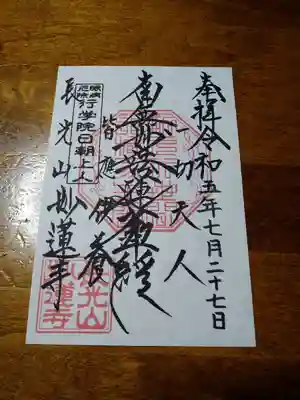 奉拝 令和五年七月二十七日
一切天人
南無妙法蓮華経
皆應供養
眼病
厄除
行学院日朝上人
長光山妙蓮寺
長光山
妙蓮寺